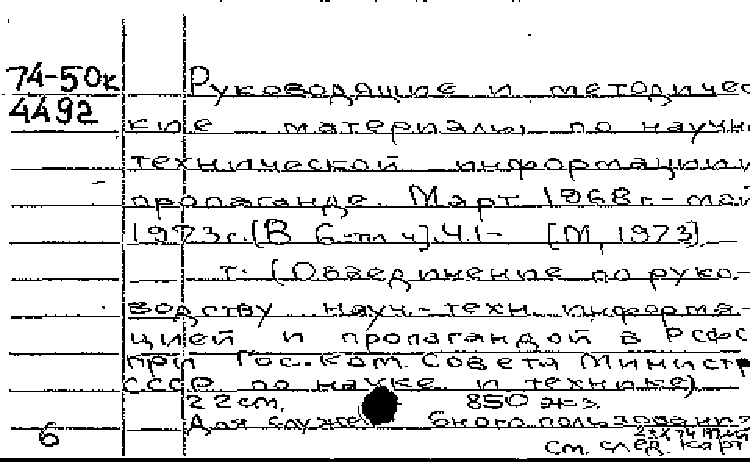 74-50к Руководящие и методичес
4492
кие материалы по научн
технической информации и
пропаганде. Март 1968 г.- май
1973 г. [В 6-ти ч]. Ч.1- [М, 1973]
т. (Объединение по руко-
водству науч.-техн. информа-
цией и пропагандой в РСФС
при Гос. ком. Совета Министр
СССР по науке и технике)
22 см. 850 экз.
Для служебного пользования
6 см. след. карт